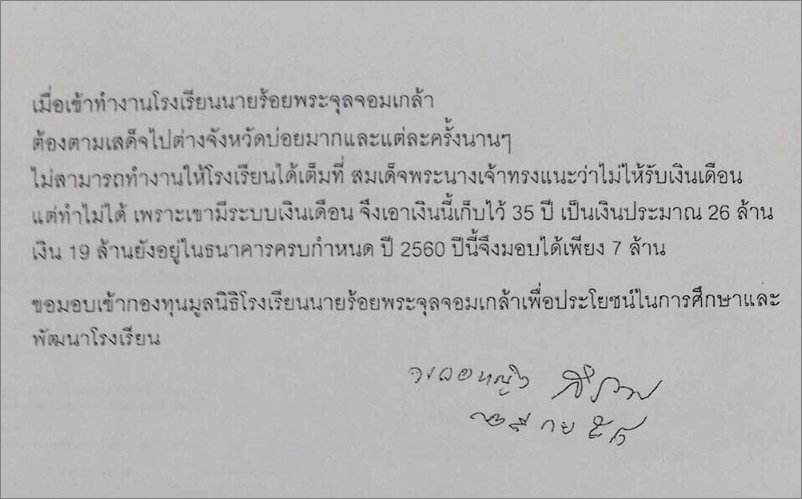 เมื่อเข้าทำงานโรงเรียนนายร้อยพระจุลจอมเกล้า
ต้องตามเสด็จไปต่างจังหวัดบ่อยมากและแต่ละครั้งนานๆ
ไม่สามารถทำงานให้โรงเรียนได้เต็มที่ สมเด็จพระนางเจ้าทรงแนะว่าไม่ให้รับเงินเดือน
แต่ทำไม่ได้ เพราะเขามีระบบเงินเดือน จึงเอาเงินนี้เก็บไว้ 35 ปี เป็นเงินประมาณ 26 ล้าน
เงิน 19 ล้านยังอยู่ในธนาคารครบกำหนด ปี 2560 ปีนี้จึงมอบได้เพียง 7 ล้าน
ขอมอบเข้ากองทุนมูลนิธิโรงเรียนนายร้อยพระจุลจอมเกล้าเพื่อประโยชน์ในการศึกษาและ
พัฒนาโรงเรียน
พลเอกหญิง
กย ๕๘